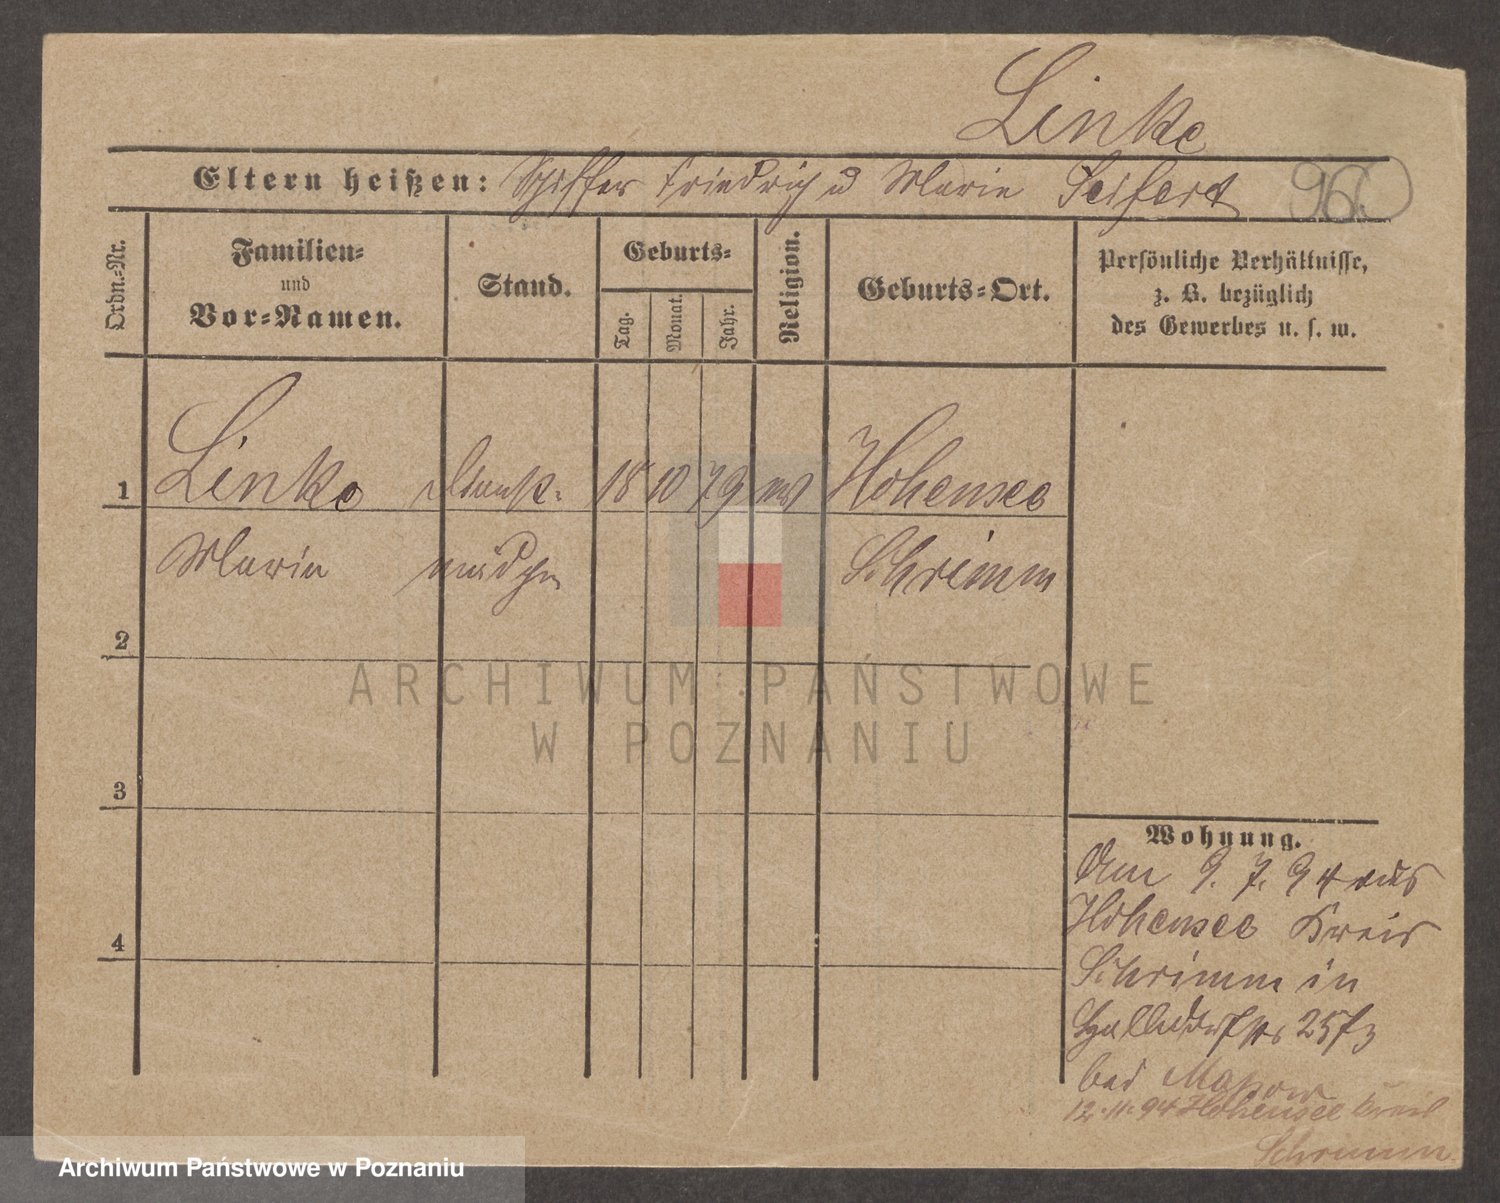 Linke
Eltern heißen: Schiffer Friedrich u Marie Seifert
960
Ordn.-Nr.
Familien-
und
Vor-Namen.
Stand.
Geburts-
Tag.
Monat.
Jahr.
Religion.
Geburts-Ort.
Persönliche Verhältnisse,
z. B. bezüglich
des Gewerbes u. s. w.
1
Linke Dienst- 18 10 79 ev Hohensee
Marie mädchen Schrimm
2
ARCHIWUM PAŃSTWOWE
W POZNANIU
3
Wohnung.
Am 9. 7. 94 aus
Hohensee Kreis
4
Schrimm in
25 f 3
bei
12.11.94 Hohensee Kreis
Schrimm.
Archiwum Państwowe w Poznaniu